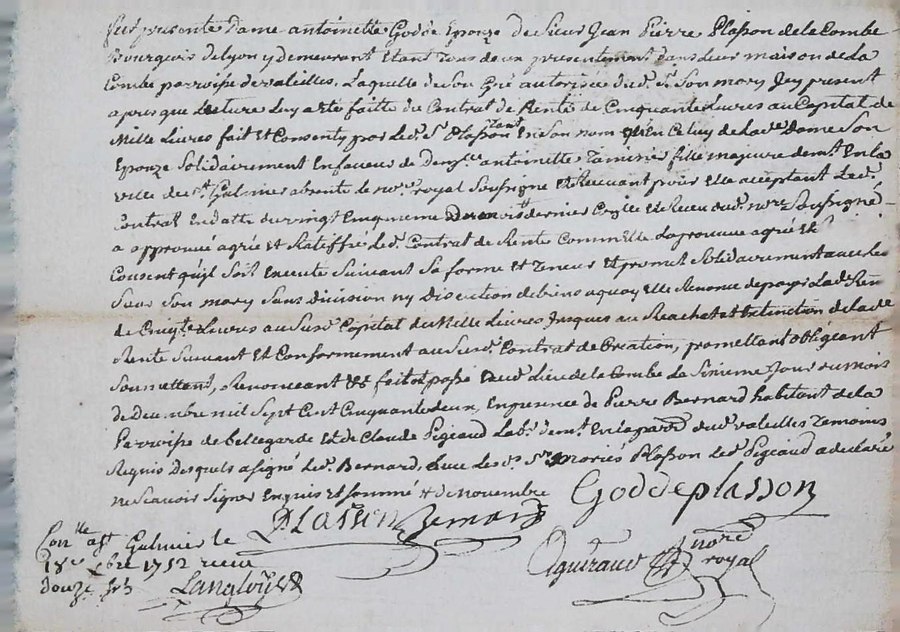 fut presente Dame antoinette Godde Epouze de Sieur Jean Pierre Plasson de la Combe
Bourgeois de lyon y demeurant Etant Tous deux presentement dans leur maison de la
Combe parroisse de valeilles, Laquelle de son gré autorisée dud. Sr. Son mary Icy present
apres que Lecture Luy a eté faitte du Contrat de Rente de Cinquante Livres au Capital de
Mille Livres fait et Consenty par led. Sr. Plasson tant En Son nom qu'En Celuy de lad. dame Son
Epouze Solidairement En faveur de Demlle. antoinette fille majeure demt. En la
ville de st. Galmier absente le nore. royal Soussigné Et Recevant pour Elle acceptant Led.
Contrat En datte du vingt Cinquieme dernier Et Receu dud. nore. Soussigné
a approuvé agréé Et Ratiffié Led. Contrat de Rente Comm'Elle L'aprouve agréé Et
Consent qu'il Soit Executé Suivant Sa forme Et Teneur Et promet Solidairement avec led.
Sieur Son mary Sans division ny Discution de biens a quoy Elle Renonce de payer Lad. Rente
de Cinqte. Livres au Susd. Capital de Mille Livres Jusques au Reachat Et Extinction de lad.
Rente Suivant Et Conformement au Susd. Contrat de Creation, promettant obligeant
Soumettant, Renonceant &a fait et passé aud. Lieu de la Combe Le Sixieme Jour du mois
de Decembre mil Sept Cent Cinquante deux, En presence de Pierre Bernard habitant de la
Parroisse de bellegarde Et de Claude Pigeaud Labr. demt. En la parre. dud. valeilles Temoins
Requis Desquels a signé Led. Bernard, avec Lesd. Srs. Mariés Plasson Led. Pigeaud a declaré
ne Scavoir Signer Enquis Et Sommé # de Novembre
Godde plasson
Plasson Bernard
Conlle. a st. Galmier le
18e. xbre 1752 receu
douze sols
Langlois
nore
royal